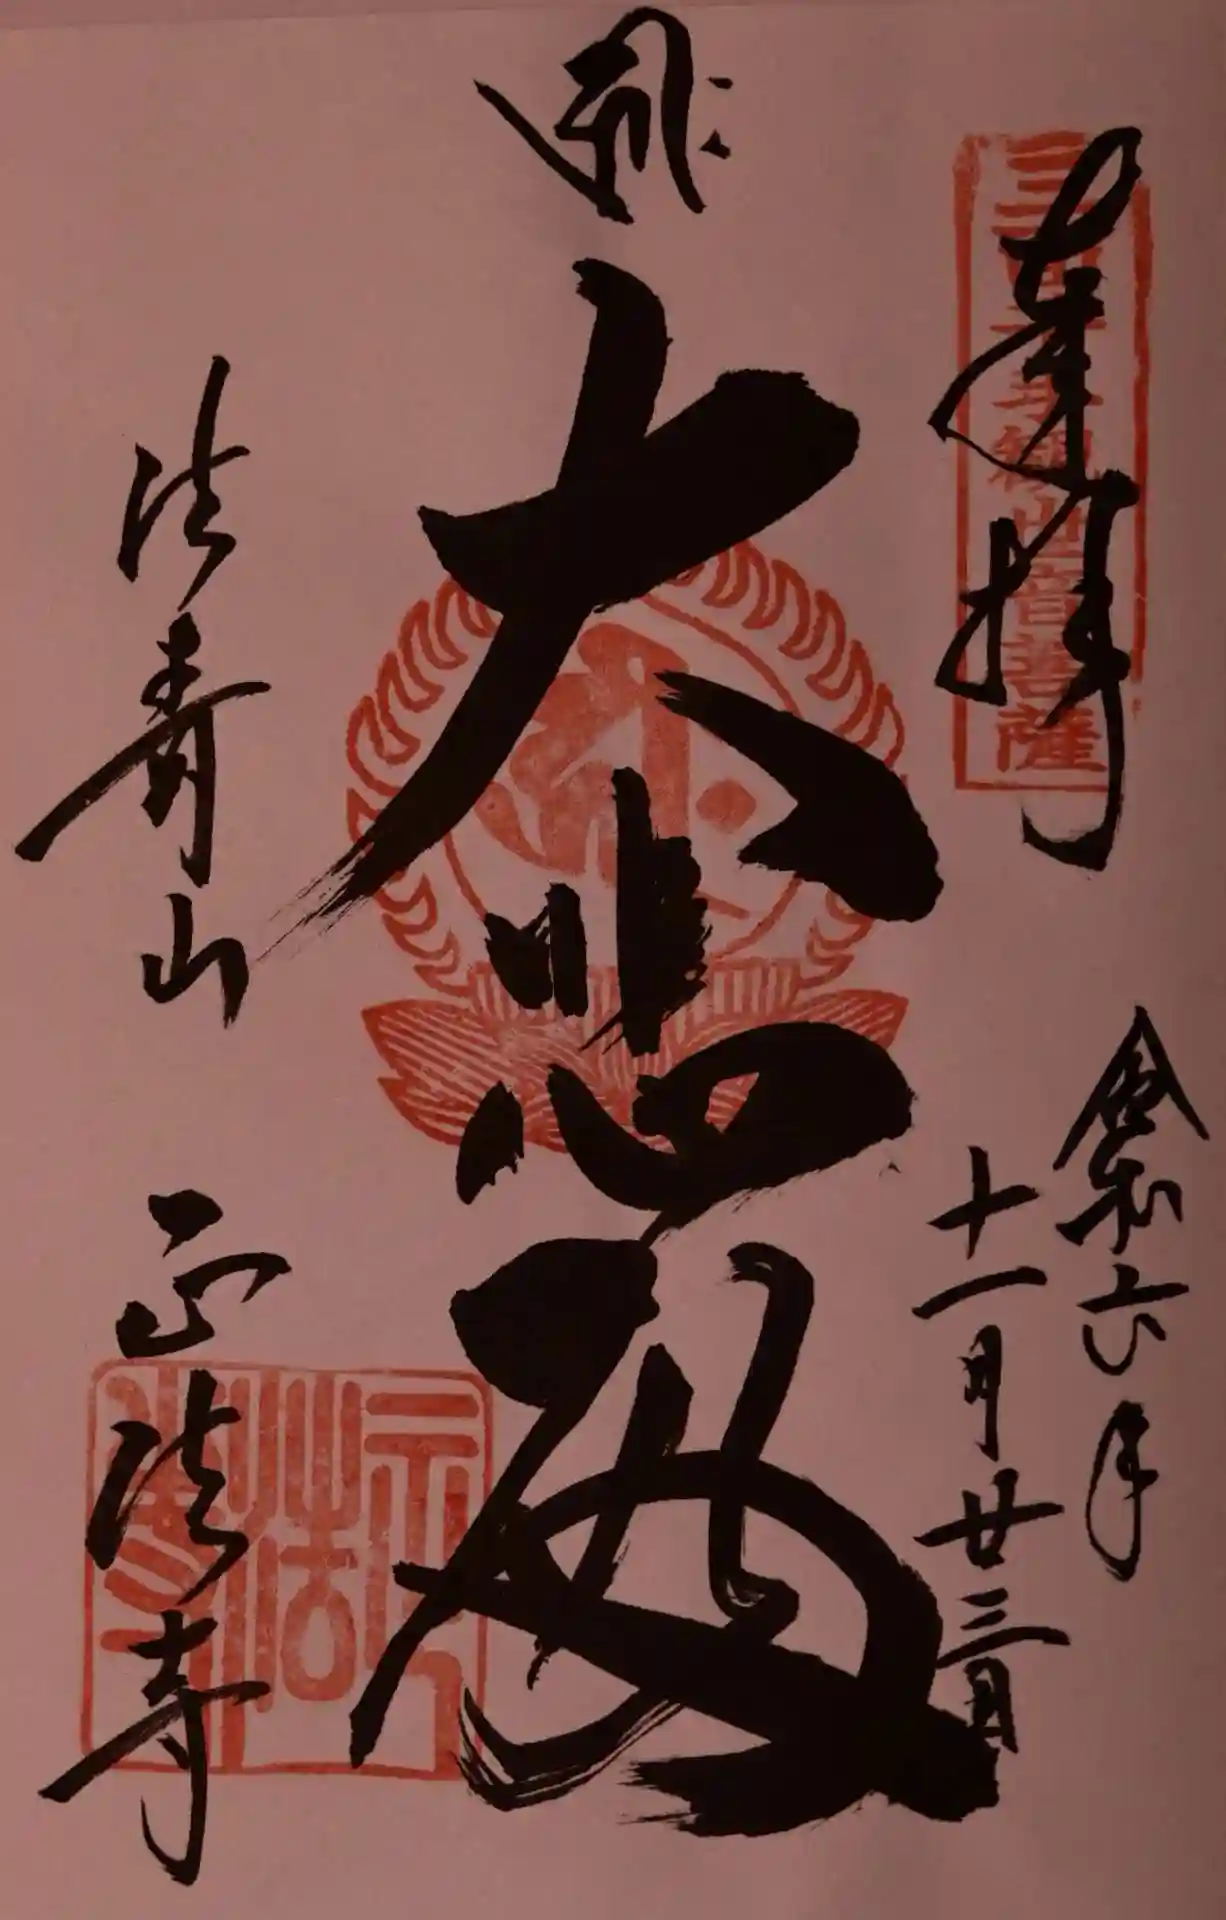 奉拝
三面千手観世音菩薩
令和六年
十一月廿三日
大悲殿
法寿山 正法寺